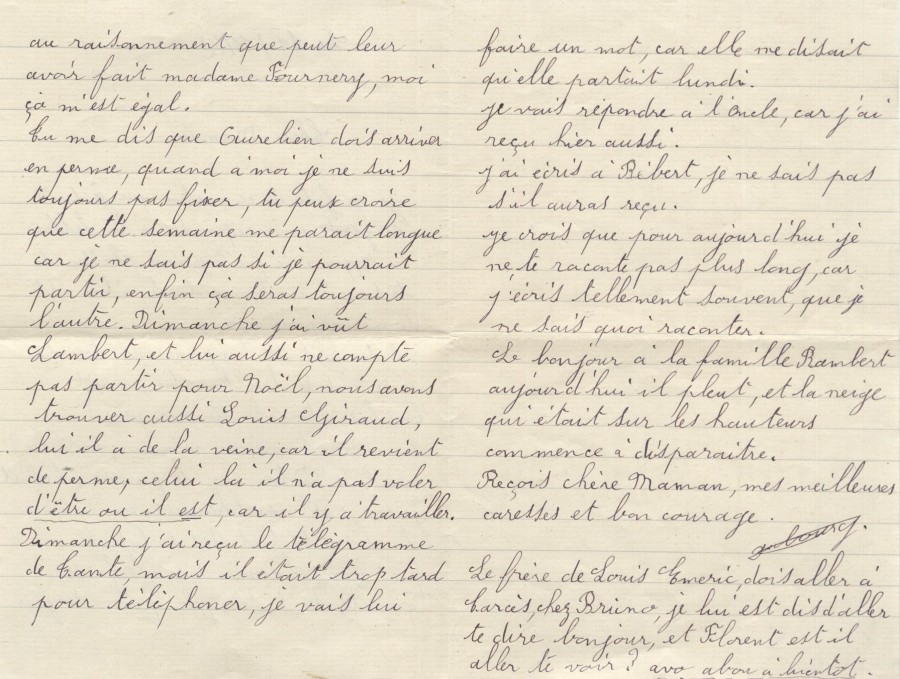 au raisonnement que peut leur
avoir fait madame Fournery, moi
çà m'est égal.
Tu me dis que Aurelien dois arriver
en perme, quand à moi je ne suis
toujours pas fixer, tu peux croire
que cette semaine me parait longue
car je ne sais pas si je pourrait
partir, enfin çà seras toujours
l'autre. Dimanche j'ai vût
Lambert, et lui aussi ne compte
pas partir pour Noël, nous avons
trouver aussi Louis Giraud,
lui il à de la veine, car il revient
de perme, celui là il n'a pas voler
d'être ou il est, car il y a travailler.
Dimanche j'ai reçu le télégramme
de Tante, mais il était trop tard
pour téléphoner, je vais lui
faire un mot, car elle me disait
qu'elle partait lundi.
je vais répondre à l'Oncle, car j'ai
reçu hier aussi.
j'ai écris à Bébert, je ne sais pas
s'il auras reçu.
je crois que pour aujourd'hui je
ne te raconte pas plus long, car
j'écris tellement souvent, que je
ne sais quoi raconter.
Le bonjour à la famille Rambert
aujourd'hui il pleut, et la neige
qui était sur les hauteurs
commence à disparaitre.
Reçois chère Maman, mes meilleures
caresses et bon courage.
Le frère de Louis Emeric, dois aller à
Carcès, chez Bruno, je lui est dis d'aller
te dire bonjour, et Florent est il
aller te voir? avo abou à bientot.